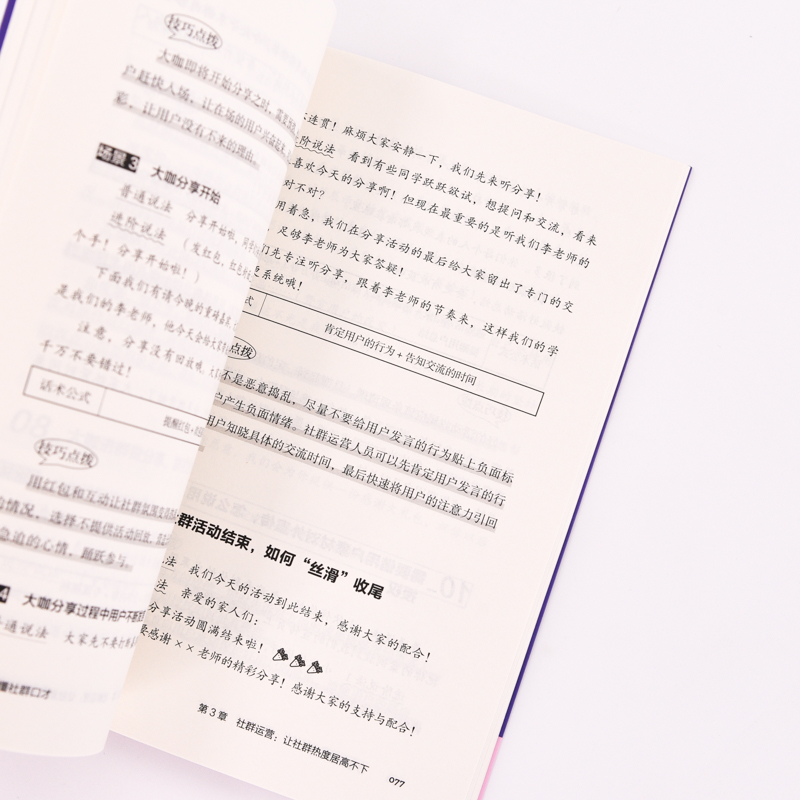 技巧点拨
大咖即将开始分享之时，需要
户赶快入场，让在场的用户
彩，让用户没有不来的理由。
场景 3 大咖分享开始
普通说法 分享开始啦，
进阶说法 （发红包，红包
个手！分享开始啦！）
下面我们有请今晚的重磅嘉宾
是我们的李老师，他今天会给大家
注意，分享没有回放哦，大
千万不要错过！
话术公式 提醒红包+
技巧点拨
用红包和互动让社群氛围
情况，选择不提供活动回放，
急迫的心情，踊跃参与。
4 大咖分享过程中用户不断
普通说法 大家先不要
懂社群口才
连贯！麻烦大家安静一下，我们先来听分享！
进阶说法 看到有些同学跃跃欲试，想提问和交流，看来
喜欢今天的分享啊！但现在最重要的是听我们李老师的
对不对？
用着急，我们在分享活动的最后给大家留出了专门的交
，足够李老师为大家答疑！
们先专注听分享，跟着李老师的节奏来，这样我们的学
更系统哦！
式 肯定用户的行为+告知交流的时间
点拨
不是恶意捣乱，尽量不要给用户发言的行为贴上负面标
户产生负面情绪。社群运营人员可以先肯定用户发言的行
用户知晓具体的交流时间，最后快速将用户的注意力引回
社群活动结束，如何“丝滑”收尾
法 我们今天的活动到此结束，感谢大家的配合！
法 亲爱的家人们：
分享活动圆满结束啦！
要感谢××老师的精彩分享！感谢大家的支持与配合！
第3章 社群运营：让社群热度居高不下 077